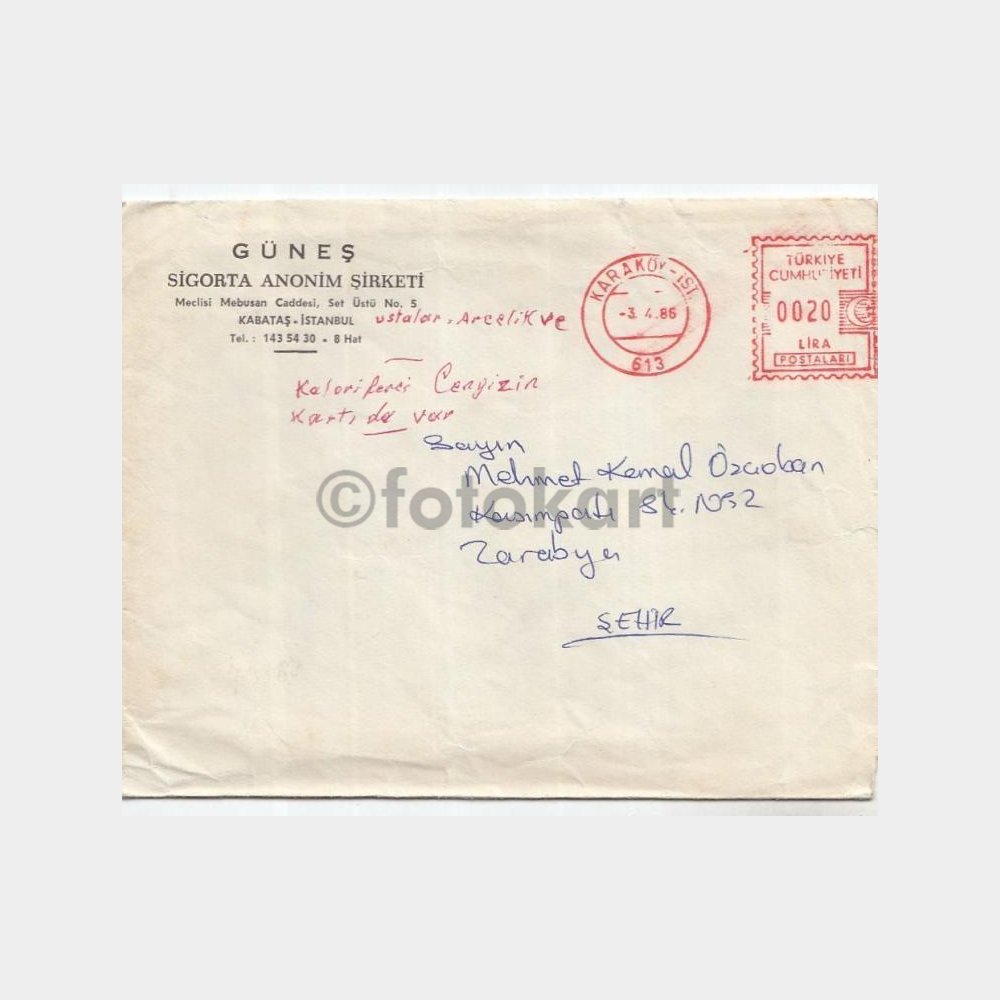 GÜNEŞ
SİGORTA ANONİM ŞİRKETİ
Meclisi Mebusan Caddesi, Set Üstü No. 5
KABATAŞ - İSTANBUL
Tel.: 143 54 30 - 8 Hat
KARAKÖY-İST.
-3. 4.86
613
TÜRKİYE
CUMHURİYETİ
0020
LİRA
POSTALARI
ustalar, Arçelik ve
Kaloriferci Cengizin
Kartı da var
Sayın
Mehmet Kemal Özçoban
Kasımpatı Sk. No
Tarabya
ŞEHİR
©fotokart